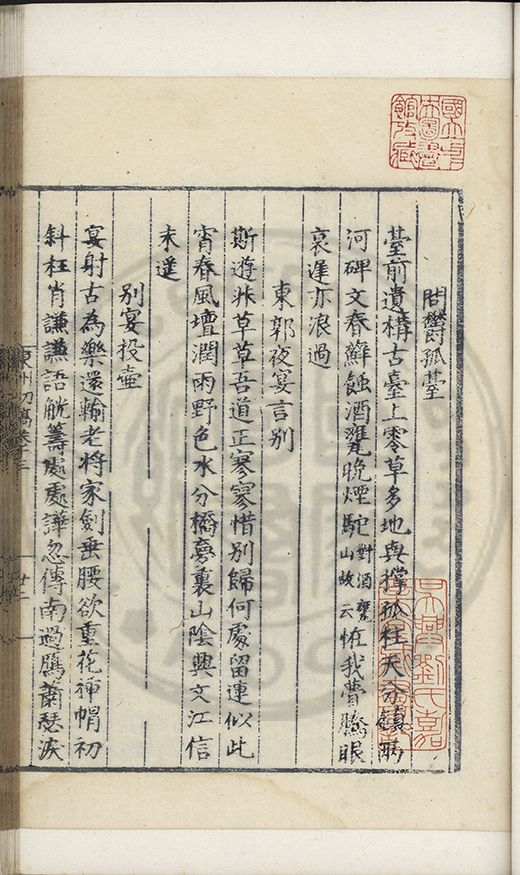 問鬱孤臺
臺前遺構古臺上零草多地與撐孤柱天分鎮兩
河碑文春蘚蝕酒甕晚煙駝對酒甕山故云恠我曹騰眼
哀遲亦浪過
東郭夜宴言別
斯遊非草草吾道正寥寥惜別歸何處留連似此
宵春風壇潤雨野色水分橋旁裏山陰興文江信
未遥
別宴投壺
宴射古為樂還輸老將家劍垂腰欲重花稱帽初
斜枉肖謙謙語觥籌處處譁忽傳南過鴈蕭瑟淚
東州初稿卷十三
廿二
國立中央圖書館收藏